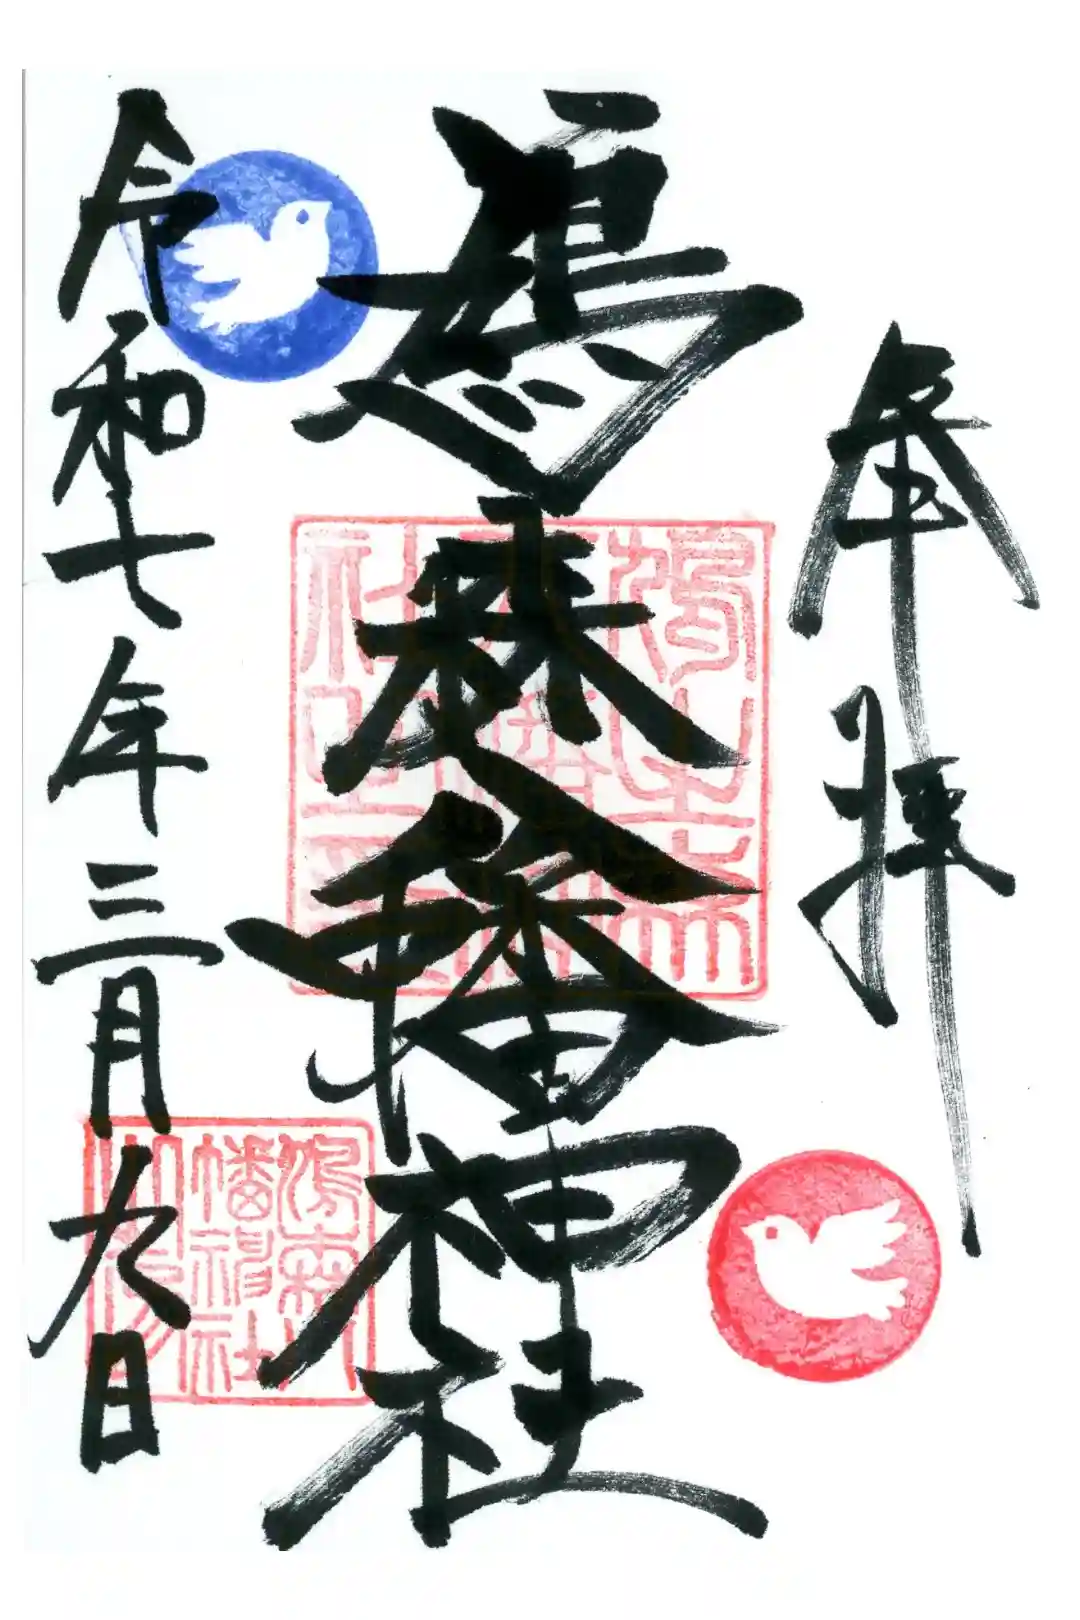 奉拝
鳩森八幡神社
令和七年三月九日
鳩之森
鳩森八
幡神社